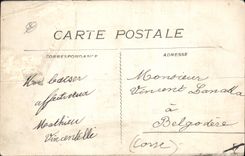 CARTE POSTALE
CORRESPONDANCE
ADRESSE
affectueux
Mathieu
Vincentelli
Monsieur
Vincent
à
Belgodère
(Corse)